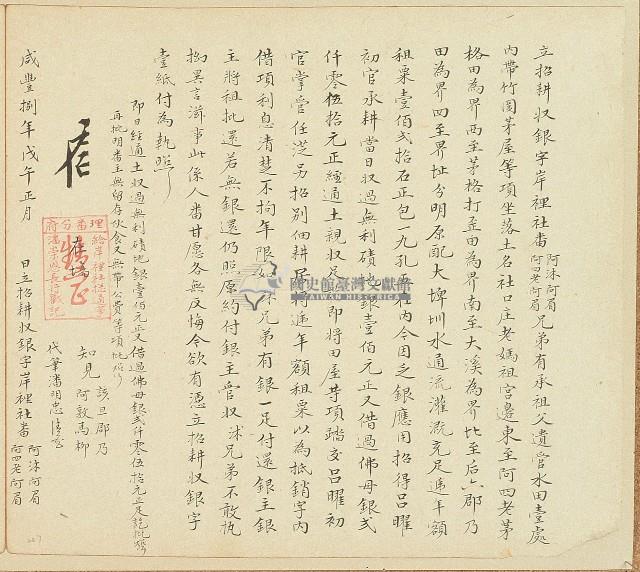 立招耕收銀字岸裡社番阿沐阿萬阿四老阿萬兄弟有承祖父遺管水田壹處
內帶竹圍茅屋等項坐落土名社口庄老媽祖宮邊東至阿四老茅
格田為界西至茅格打歪田為界南至大溪為界北至后六郡乃
田為界四至界址分明原配大埤圳水通流灌溉充足遞年額
租粟壹佰弍拾石正包一九孔
社內今因乏銀應用招得呂曜
初官承耕當日收過無利磧地銀壹佰元正又借過佛母銀弍
仟零伍拾元正經通土親收足
即將田屋等項踏交呂曜初
官掌管任從另招別佃耕居
遞年額租粟以為抵銷字內
借項利息清楚不拘年限如沐兄弟有銀一足付還銀主銀
主將租批還若無銀還仍照原約付銀主管收沐兄弟不敢執
拗異言滋事此係人番甘愿各無反悔今欲有憑立招耕收銀字
壹紙付為執照
即日經通土收過無利磧地銀壹佰元正又借過佛母銀弍仟零伍拾元正足訖批照
再批明番主無留存伙食又無帶公費等項批照
理番分府
知見
該旦郡乃
阿敦馬柳
代筆潘明忠
咸豐捌年戊午正月 日立招耕收銀字岸裡社番阿沐阿萬阿四老阿萬
國史館臺灣文獻館
TAIWAN HISTORICA